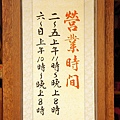 營業時間
二～五上午11時～晚上8時
六～日上午10時～晚上8時